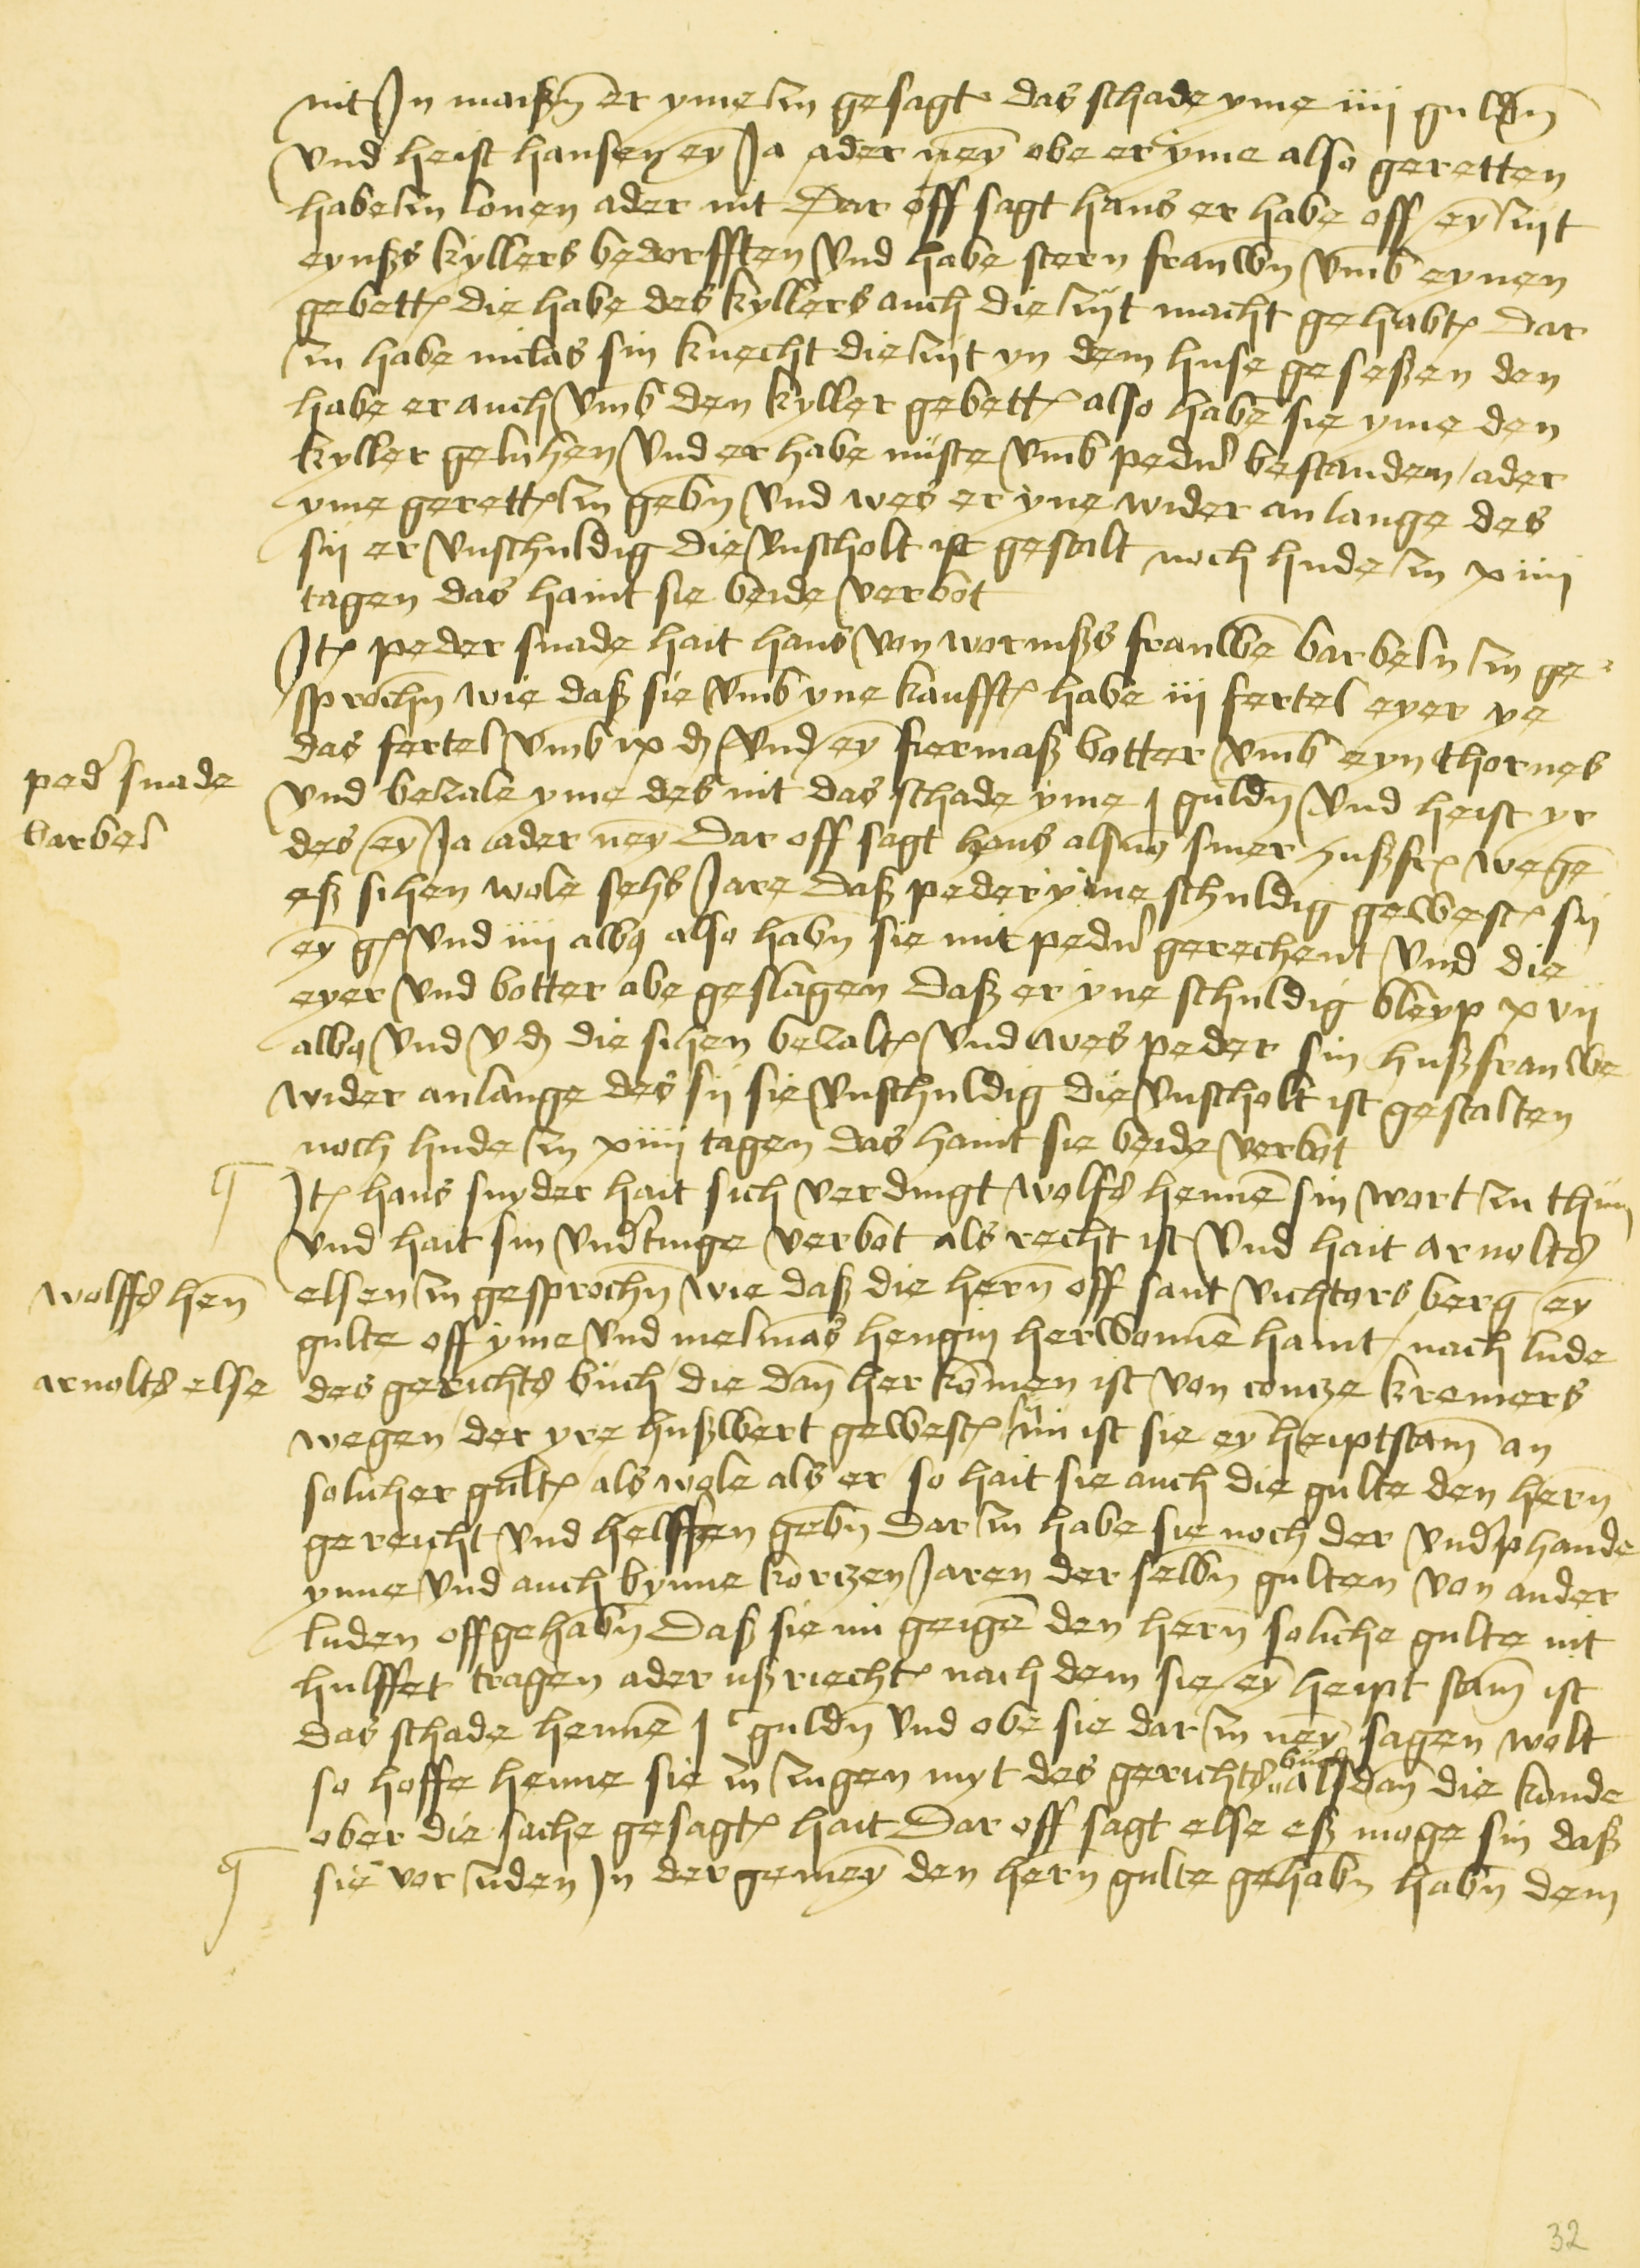 nit Jn maißen er yme zu gesagt das schade yme iiij guldn
Vnd heist hansen ey Ja ader ney obe er yme also geretten
habe zu lonen ader nit Dar off sagt hans er habe off ey zijt
eynßs kyllers bedorfften Vnd habe stern frauwn Vmb eynen
gebett die habe des kyllers auch die zijt macht gehabt Dar
zu habe niclas sin knecht die zijt yn dem huse geseßen den
habe er auch Vmb den kyller gebett also habe sie yme den
kyller geluhen Vnd er habe nuste Vmb pedn bestanden ader
yme gerett zu gebn Vnd wes er yne wider anlange des
sij er Vnschuldig die Vnscholt ist gestalt noch hude zu xiiij
tagen das haint sie beide Verbot
Jt peder snade hait hans Von wormßs frauwe barbeln zu ge
sprochn wie daß sie Vmb yne kaufft habe iij fertel eyer ye
das fertel Vmb ix d Vnd ey fiermaß botter Vmb eyn thornes
ped snade
barbel
Vnd bezale yme des nit das schade yme j guldn Vnd heist yr
des ey Ja ader ney Dar off sagt hans als von siner hußfr wege
eß sihen wole sehs Jare Daß peder yme schuldig gewest sij
ey g Vnd iiij alb also habn sie mit pedn gerechent Vnd die
eyer Vnd botter abe geslagen Daß er yne schuldig bleyp xvij
alb Vnd v d die sihen bezalt Vnd wes peder sin hußfrauwe
wider anlange des sij sie Vnschuldig die Vnscholt ist gestalten
noch hude zu xiiij tagen das haint sie beide Verbot
Jt hans snyder hait sich Verdingt wolffs henne sin wort zu thun
Vnd hait sin Vndtinge Verbot als recht ist Vnd hait arnolts
wolffs hen
elsen zu gesprochn wie daß die hern off sant Vichtors berg ey
gulte off yme Vnd melmas hengin herwonne haint nach lude
arnolts else
des gerichts buch die dan her komen ist Von contze kremers
wegen der yre hußwert gewest Nu ist sie ey heiptstam an
solicher gult als wole als er so hait sie auch die gulte den hern
gereicht Vnd helffen gebn Dar zu habe sie noch der Vndphande
ynne Vnd auch bynne kortzen Jaren der selbn gulten Von ander
luden offgehabn Daß sie nu geige den hern soliche gulte nit
hulffet tragen ader ußriecht nach dem sie ey heipt stam ist
das schade henne j c guldn Vnd obe sie dar zu ney sagen wolt
so hoffe henne sie zu zugen myt des gerichts buch als dan die kunde
ober die sache gesagt hait Dar off sagt else eß moge sin daß
sie vor zuden Jn der gemey den hern gulte gehabn habn dem
32